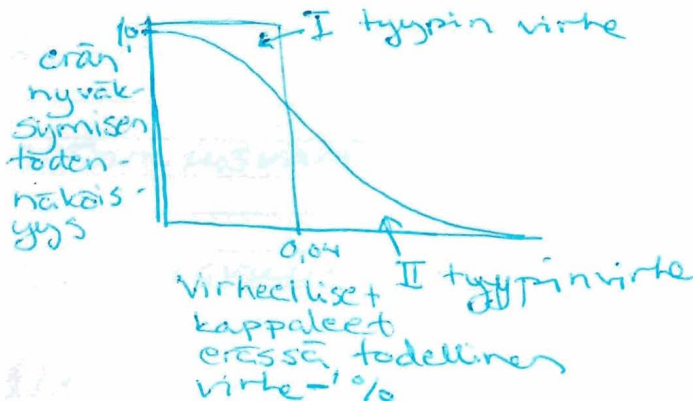 I tyypin virhe
1,0
erän
hyväk-
symisen
toden-
näköis-
yys
0,04
II tyypin virhe
virheelliset
kappaleet
erässä todellinen
virhe-%